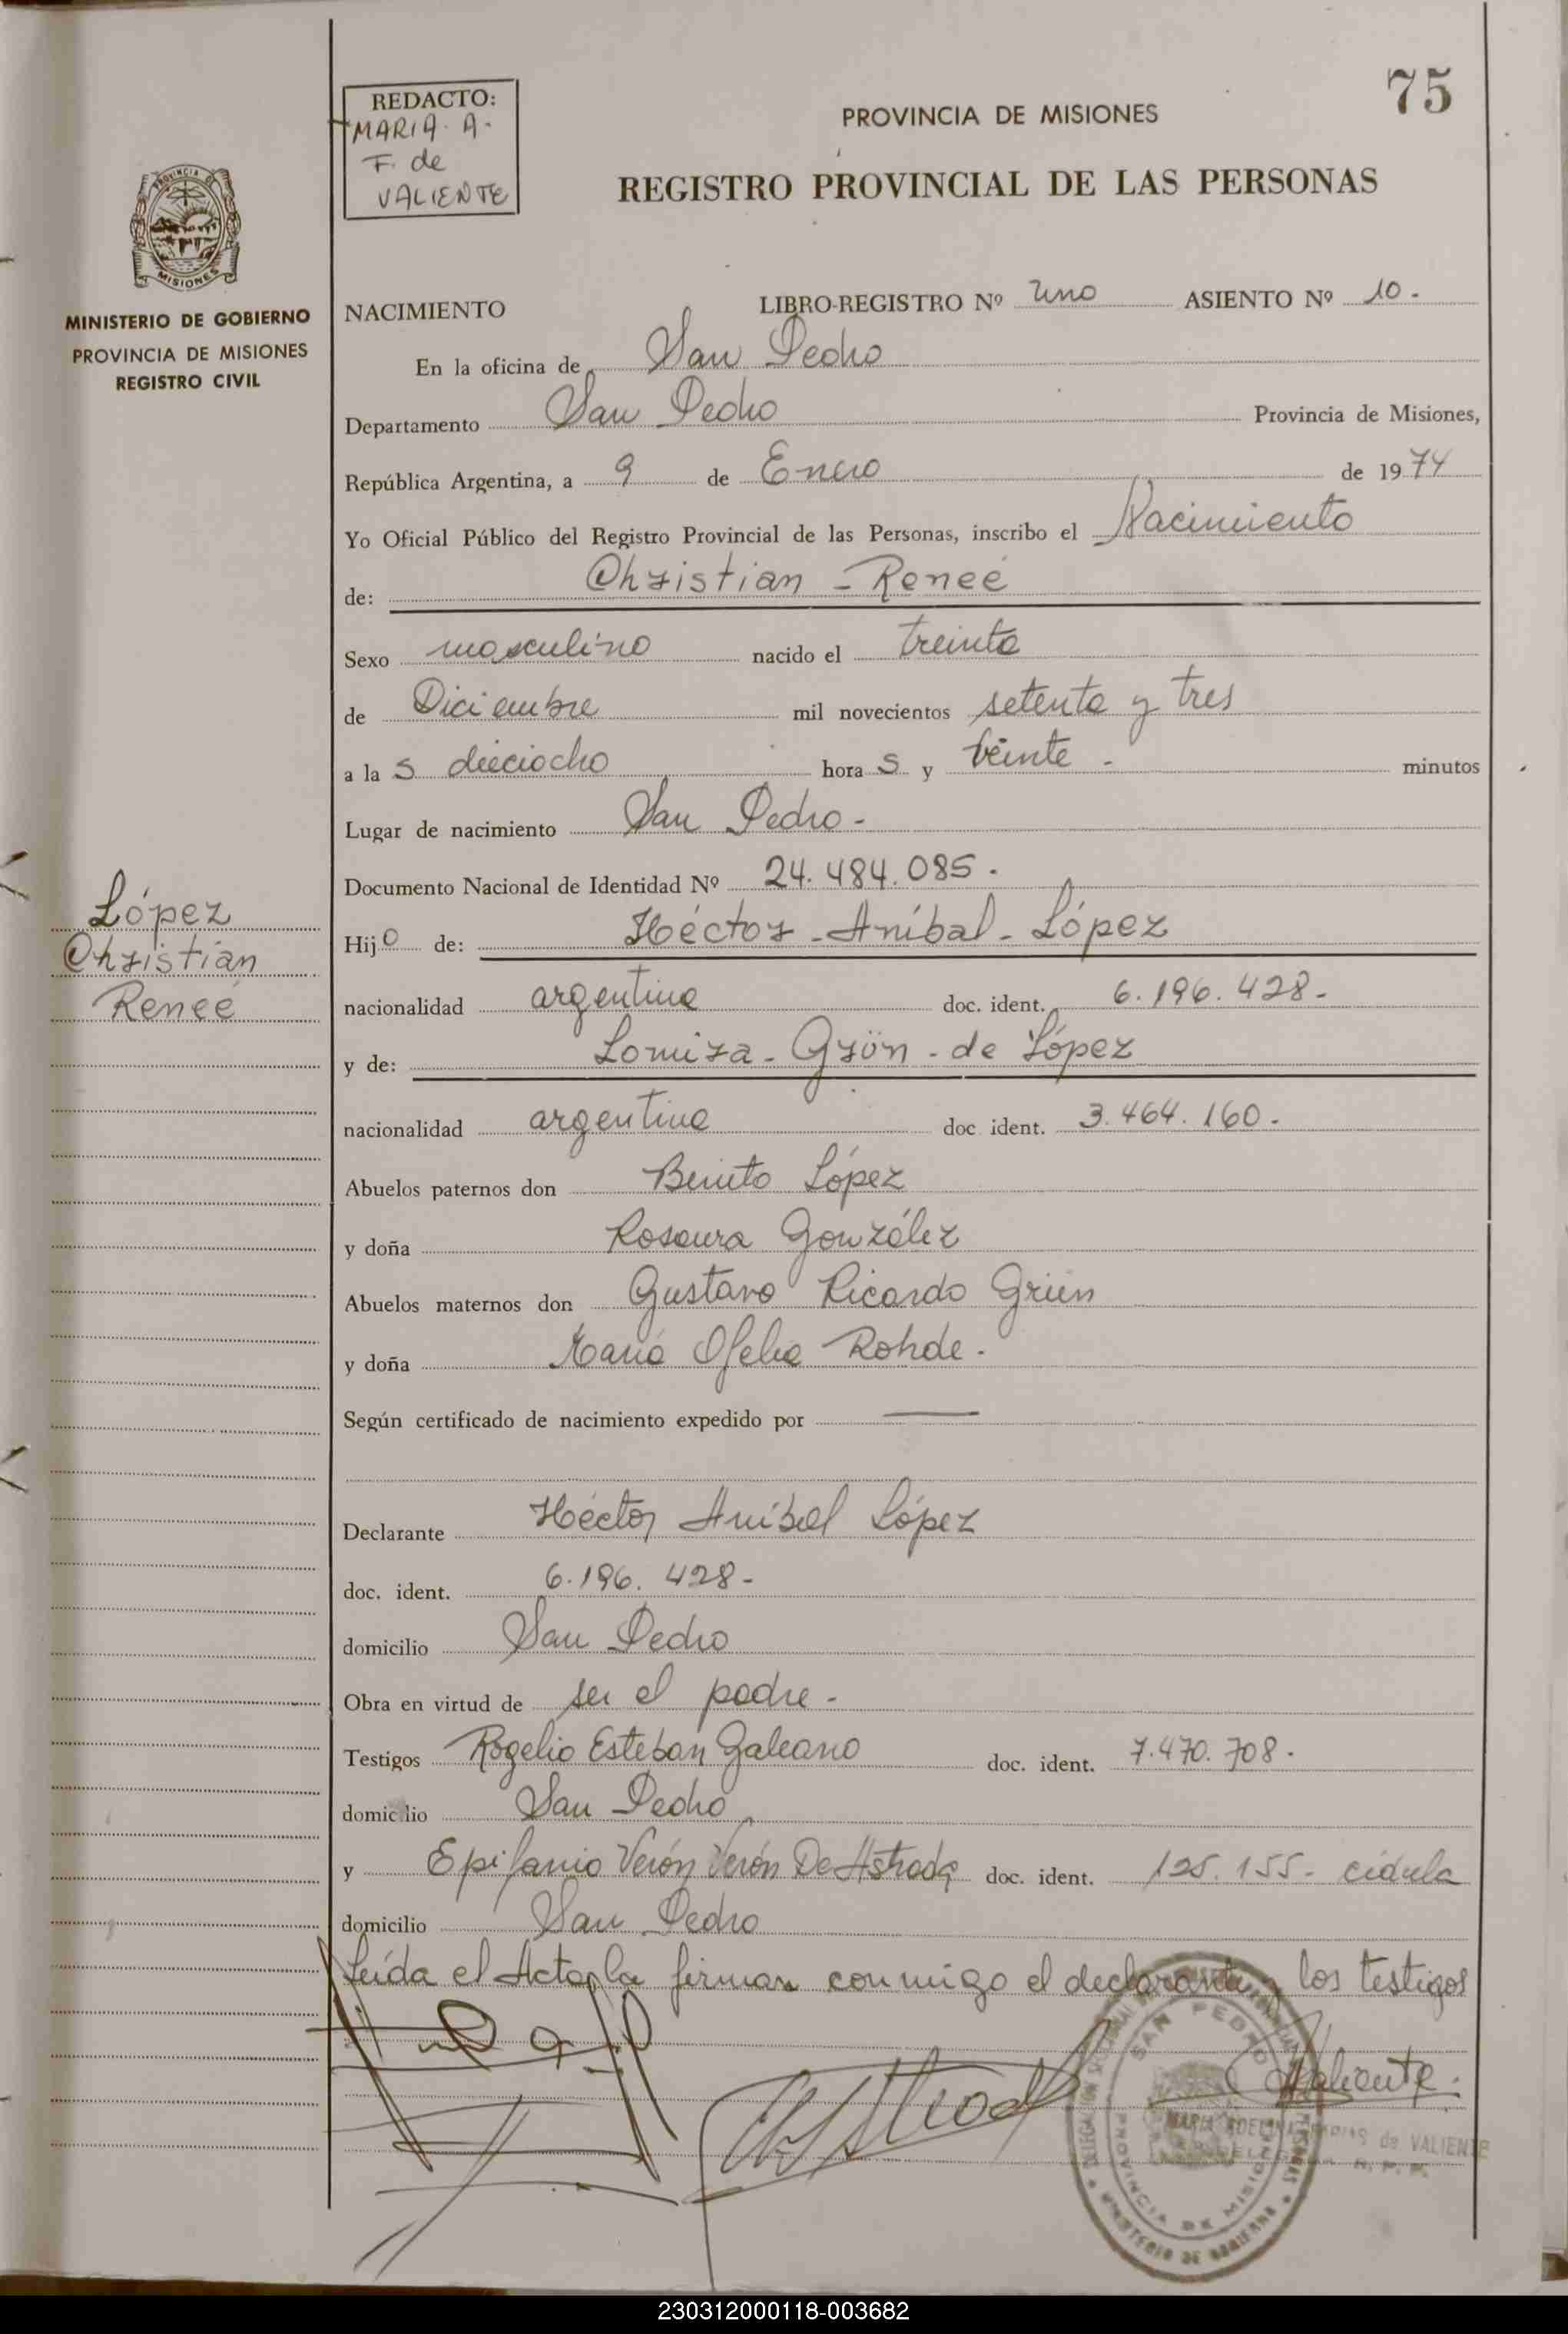 75
REDACTO:
MARIA. A.
F. de
VALIENTE
PROVINCIA DE MISIONES
REGISTRO PROVINCIAL DE LAS PERSONAS
MISIONES
MINISTERIO DE GOBIERNO
PROVINCIA DE MISIONES
REGISTRO CIVIL
NACIMIENTO LIBRO-REGISTRO Nº Uno ASIENTO Nº 10.-
En la oficina de San Pedro
Departamento San Pedro Provincia de Misiones,
República Argentina, a 9 de Enero de 1974
Yo Oficial Público del Registro Provincial de las Personas, inscribo el Nacimiento
de: Christian - Reneé
Sexo masculino nacido el treinta
de Diciembre mil novecientos setenta y tres
a las dieciocho horas y veinte - minutos
Lugar de nacimiento San Pedro-
Documento Nacional de Identidad Nº 24.484.085.
López
Christian
Reneé
Hijo de: Héctor - Aníbal - López
nacionalidad argentina doc. ident. 6.196.428-
y de: Lomira - Grön - de López
nacionalidad argentina doc. ident. 3.464.160.
Abuelos paternos don Benito López
y doña Rosaura González
Abuelos maternos don Gustavo Ricardo Grün
y doña María Ofelia Rohde.
Según certificado de nacimiento expedido por —
Declarante Héctor Aníbal López
doc. ident. 6.196.428-
domicilio San Pedro
Obra en virtud de ser el padre-
Testigos Rogelio Esteban Galeano doc. ident. 7.470.708.
domicilio San Pedro
y Epifanio Verón Verón De Astrada doc. ident. 125.155- cédula
domicilio San Pedro
Leída el Acta, la firman conmigo el declarante y los testigos
SAN PEDRO
PROVINCIA DE MISIONES
MINISTERIO DE GOBIERNO
Valiente.
MARIA ADELINA de VALIENTE
R. P. P.
230312000118-003682